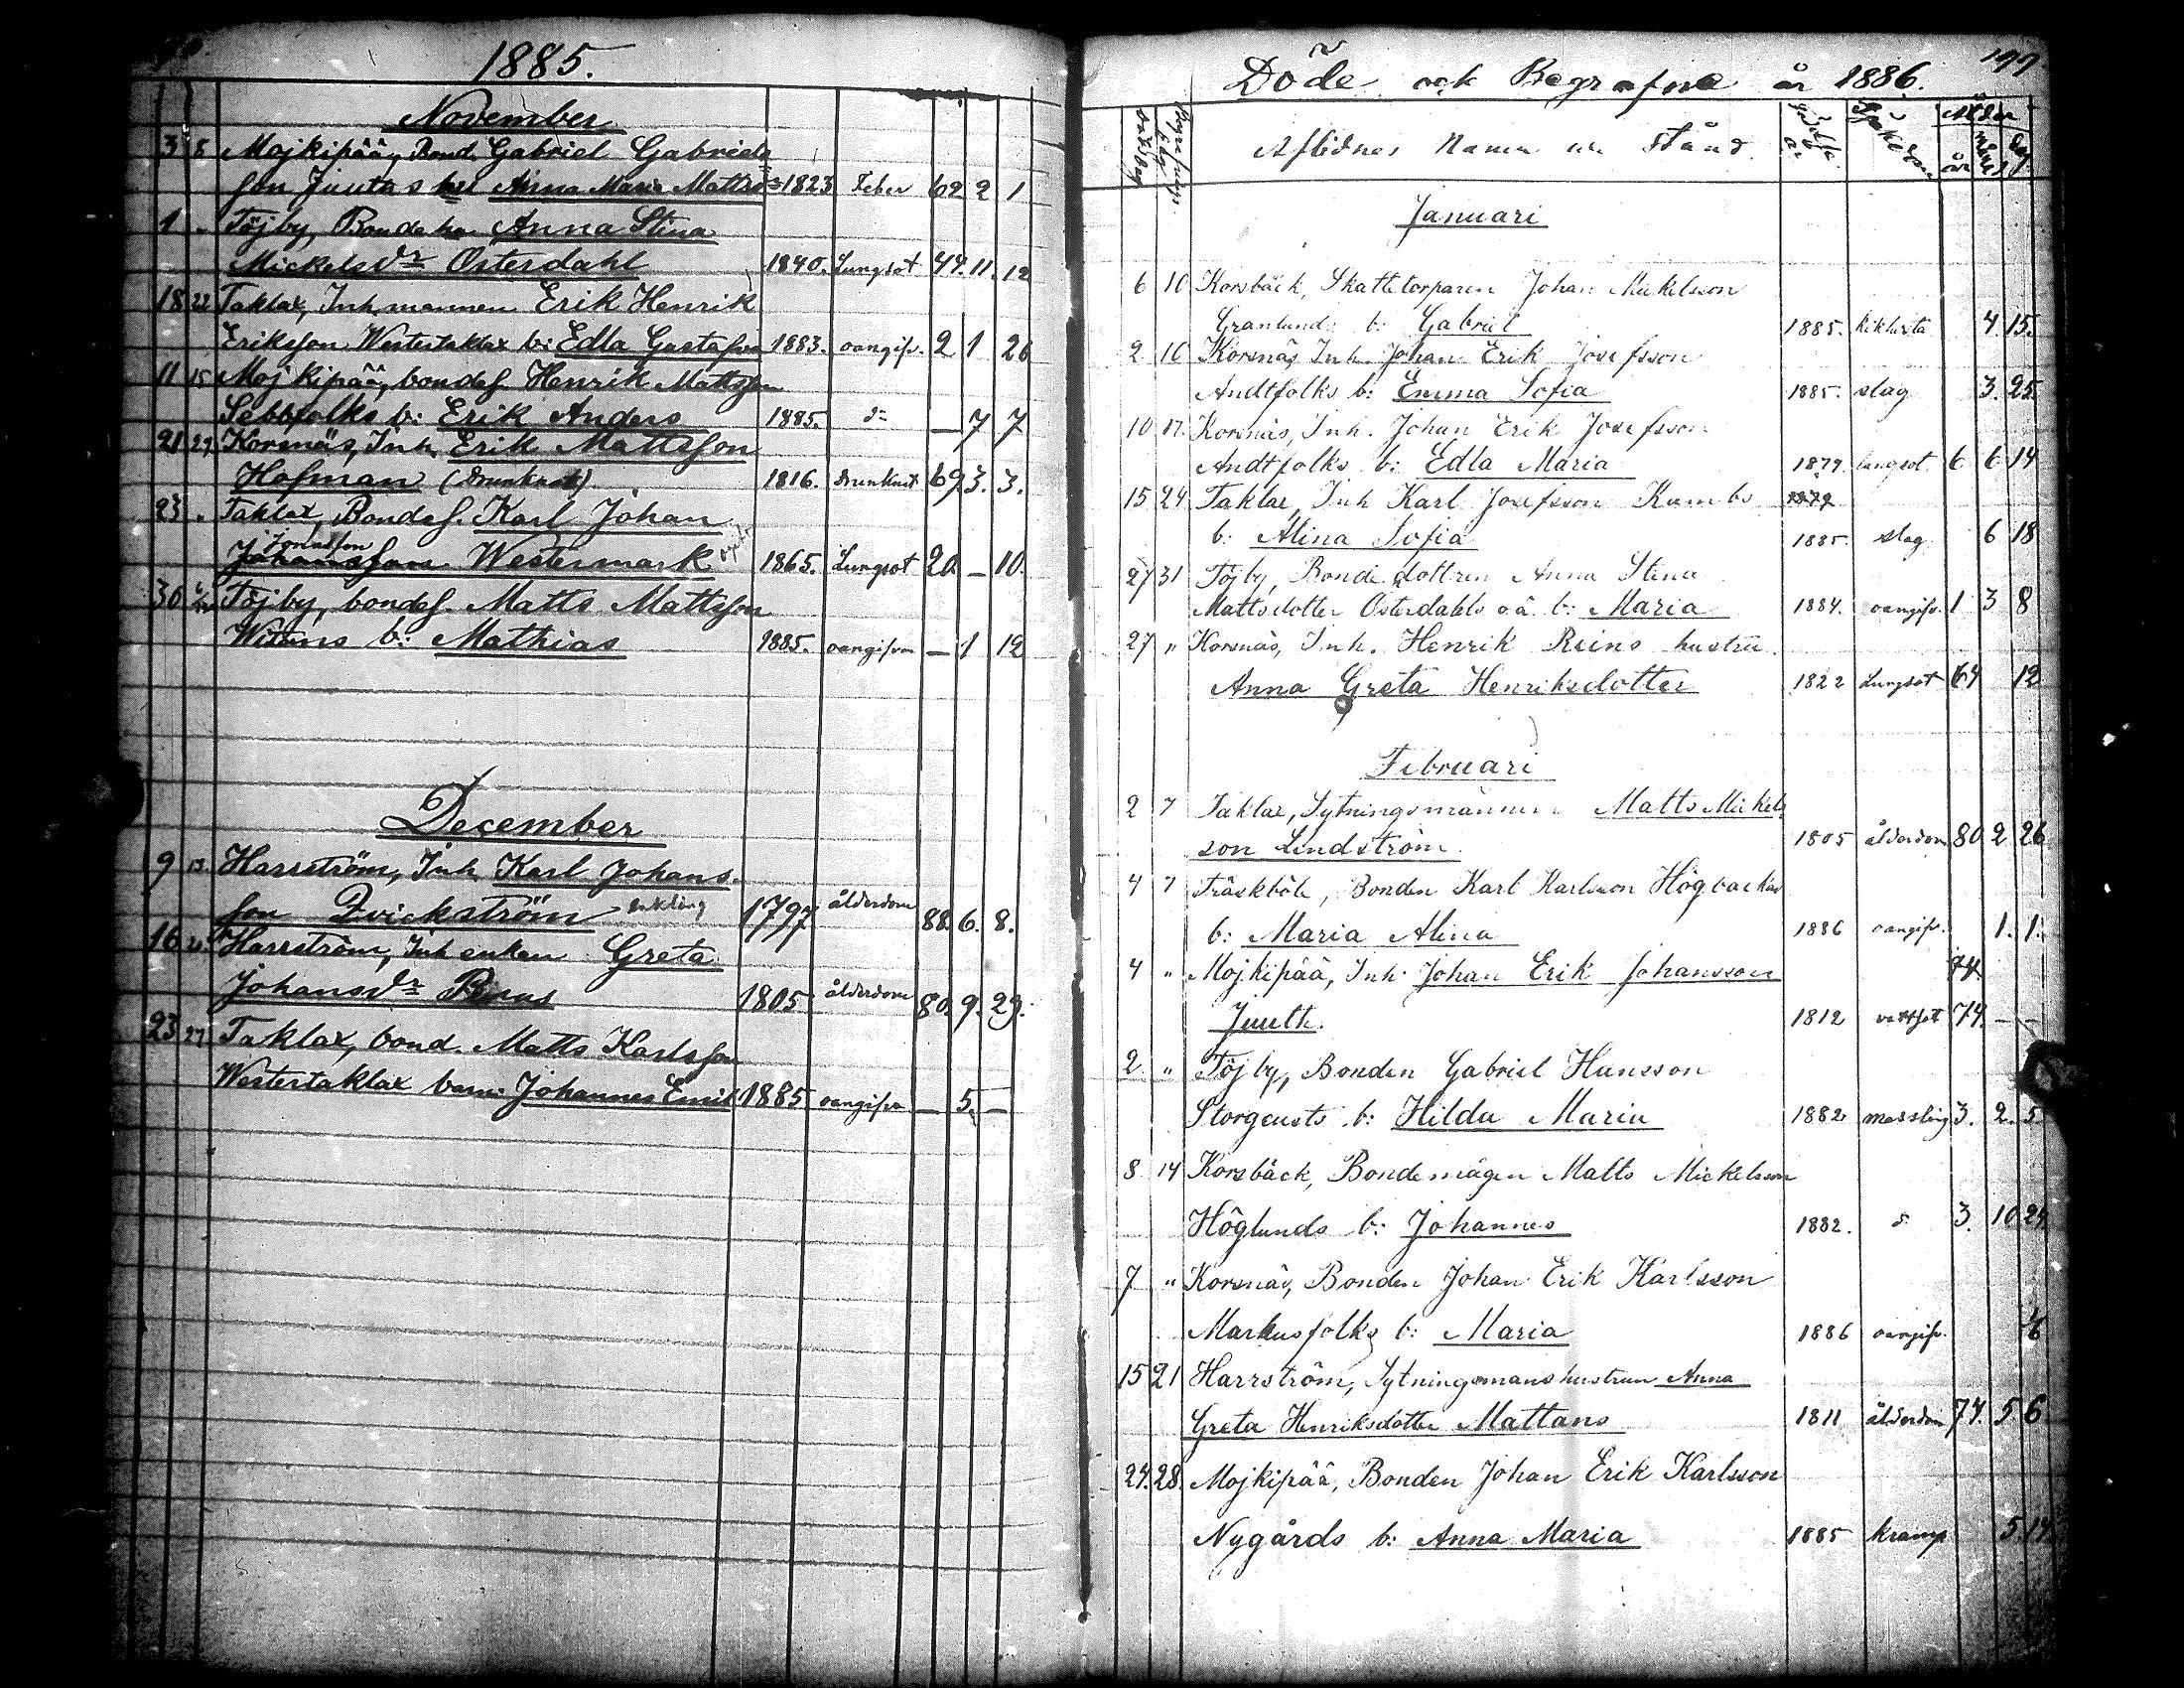 1885.
November
3 8 Mojkipää, Bond. Gabriel Gabriels
son Juutas hst Anna Maria Mattsd 1823 Feber 62 2 1
1 " Töjby, Bondehu Anna Stina
Mickelsdr Österdahl 1840. Lungsot 44. 11. 12
18 22 Taklax, Inh.mannen Erik Henrik
Eriksson Westertaklax b: Edla Gustafva 1883. oangifv. 2 1 26
11 15 Mojkipää, bondes. Henrik Mattsson
Sebbfolks b: Erik Anders 1885. do — 7 7
21 29 Korsnäs, Inh. Erik Mattsson
Hofman (drunknat) 1816. Drunknat 69 3. 3.
23 " Taklax, Bondes. Karl Johan
Jonasson
Johansson Westermark 1865. Lungsot 20. — 10.
30 Töjby, bondes. Matts Mattsson
b: Mathias 1885. oangifven — 1 12
December
9 13 Harrström, Inh. Karl Johans
son Qvickström enkling 1797 ålderdom 88. 6. 8.
16 Harrström, Inh enkan Greta
Johansdr 1805 ålderdom 80. 9. 29.
23 27 Taklax, bond. Matts Karlsson
Westertaklax barn: Johannes Emil 1885 oangifven — 5. —
199
Döde och Begrafne år 1886.
Aflidnes Namn och Stånd
Ålder
år
Januari
6 10 Korsbäck, Skattetorparen Johan Mickelsson
Granlunds b: Gabriel 1885. kikhosta 4 15.
2 10 Korsnäs Inh. Johan Erik Josefsson
Andtfolks b: Emma Sofia 1885. slag 3. 25.
10 17. Korsnäs, Inh. Johan Erik Josefsson
Andtfolks b: Edla Maria 1879. lungsot. 6 6 14
15 24 Taklax, Inh Karl Josefsson Kumbs 1879
b: Alina Sofia 1885. slag. 6 18
27 31 Töjby, Bonde dottren Anna Stina
Mattsdotter Österdahls o.ä. b: Maria 1884. oangifv. 1 3 8
27 " Korsnäs, Inh. Henrik Reins hustru
Anna Greta Henriksdotter 1822 Lungsot 64 12
Februari
2 7 Taklax, Sytningsmannen Matts Mickels
son Lindström. 1805 ålderdom 80 2 26
4 7 Träskböle, Bonden Karl Karlsson Högbackas
b: Maria Alina 1886 oangifv. 1. 1.
4 " Mojkipää, Inh. Johan Erik Johansson 74.
Juuth. 1812 vattsot 74. — —
2 " Töjby, Bonden Gabriel Hansson
Storgeusts b: Hilda Maria 1882 messling 3. 2. 5.
8 14 Korsbäck, Bondemågen Matts Mickelsson
Höglunds b: Johannes 1882. d. 3. 10 24
7 " Korsnäs, Bonden Johan Erik Karlsson
Markusfolks b: Maria 1886 oangifv. 6
15 21 Harrström, Sytningsmanshustrun Anna
Greta Henriksdotter Mattans 1811 ålderdom 74. 5 6
24. 28. Mojkipää, Bonden Johan Erik Karlsson
Nygårds b: Anna Maria 1885 kramp 5. 14